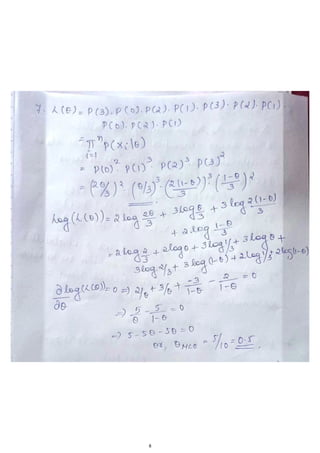 7. L(θ) = P(3). P(0). P(2). P(1). P(3). P(2). P(1).
P(0). P(2). P(1)
= π^n_{i=1} P(X_i|θ)
= P(0)^2 P(1)^3 P(2)^3 P(3)^2
= (2θ/3)^2. (θ/3)^3. (2(1-θ)/3)^3 (1-θ/3)^2
Log(L(θ)) = 2 log 2θ/3 + 3 log θ/3 + 3 log 2(1-θ)/3
+ 2 log 1-θ/3
= 2 log 2/3 + 2 log θ + 3 log 1/3 + 3 log θ +
3 log 2/3 + 3 log (1-θ) + 2 log 1/3 + 2 log(1-θ)
∂ log(L(θ))/∂θ = 0 => 2/θ + 3/θ + -3/1-θ - 2/1-θ = 0
=> 5/θ - 5/1-θ = 0
=> 5 - 5θ - 5θ = 0
or, θ_MLE = 5/10 = 0.5.
6